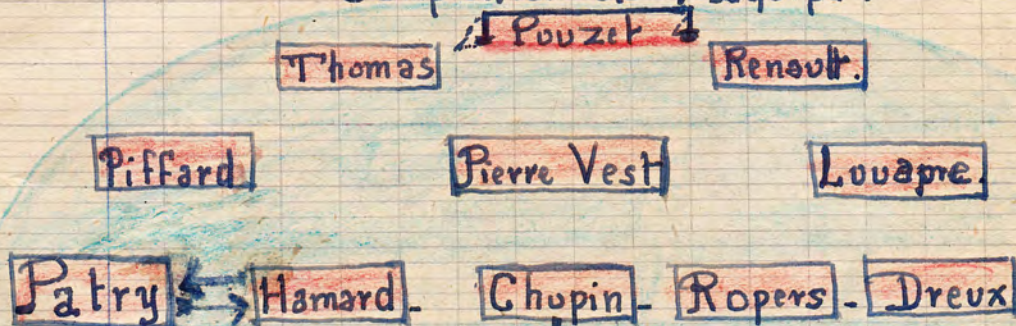 Pouzet
Thomas Renault.
Piffard Pierre Vest Louapre.
Patry Hamard - Chopin - Ropers - Dreux